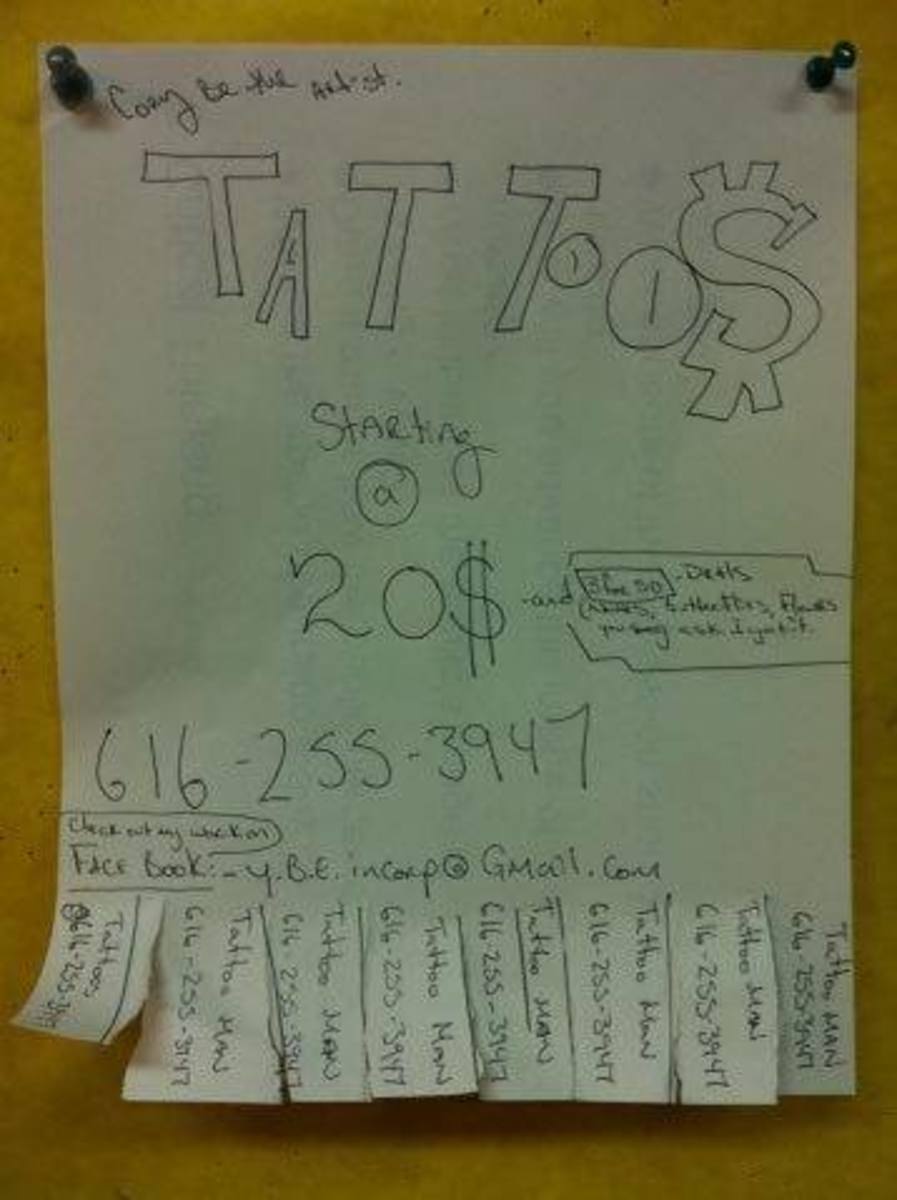 Cory Be the Artist.
TATTOO$
Starting
@
20$
-and 3 for 50 - Deals
Butterflies, Flowers
you may ask I got it.
616-255-3947
Check out my work on
FACE Book: - Y.B.E. incorp@GMail.com
Tattoos
616-255-3947
Tattoo MAN
616-255-3947
Tattoo MAN
616-255-3947
Tattoo MAN
616-255-3947
Tattoo MAN
616-255-3947
Tattoo MAN
616-255-3947
Tattoo MAN
616-255-3947
Tattoo MAN
616-255-3947